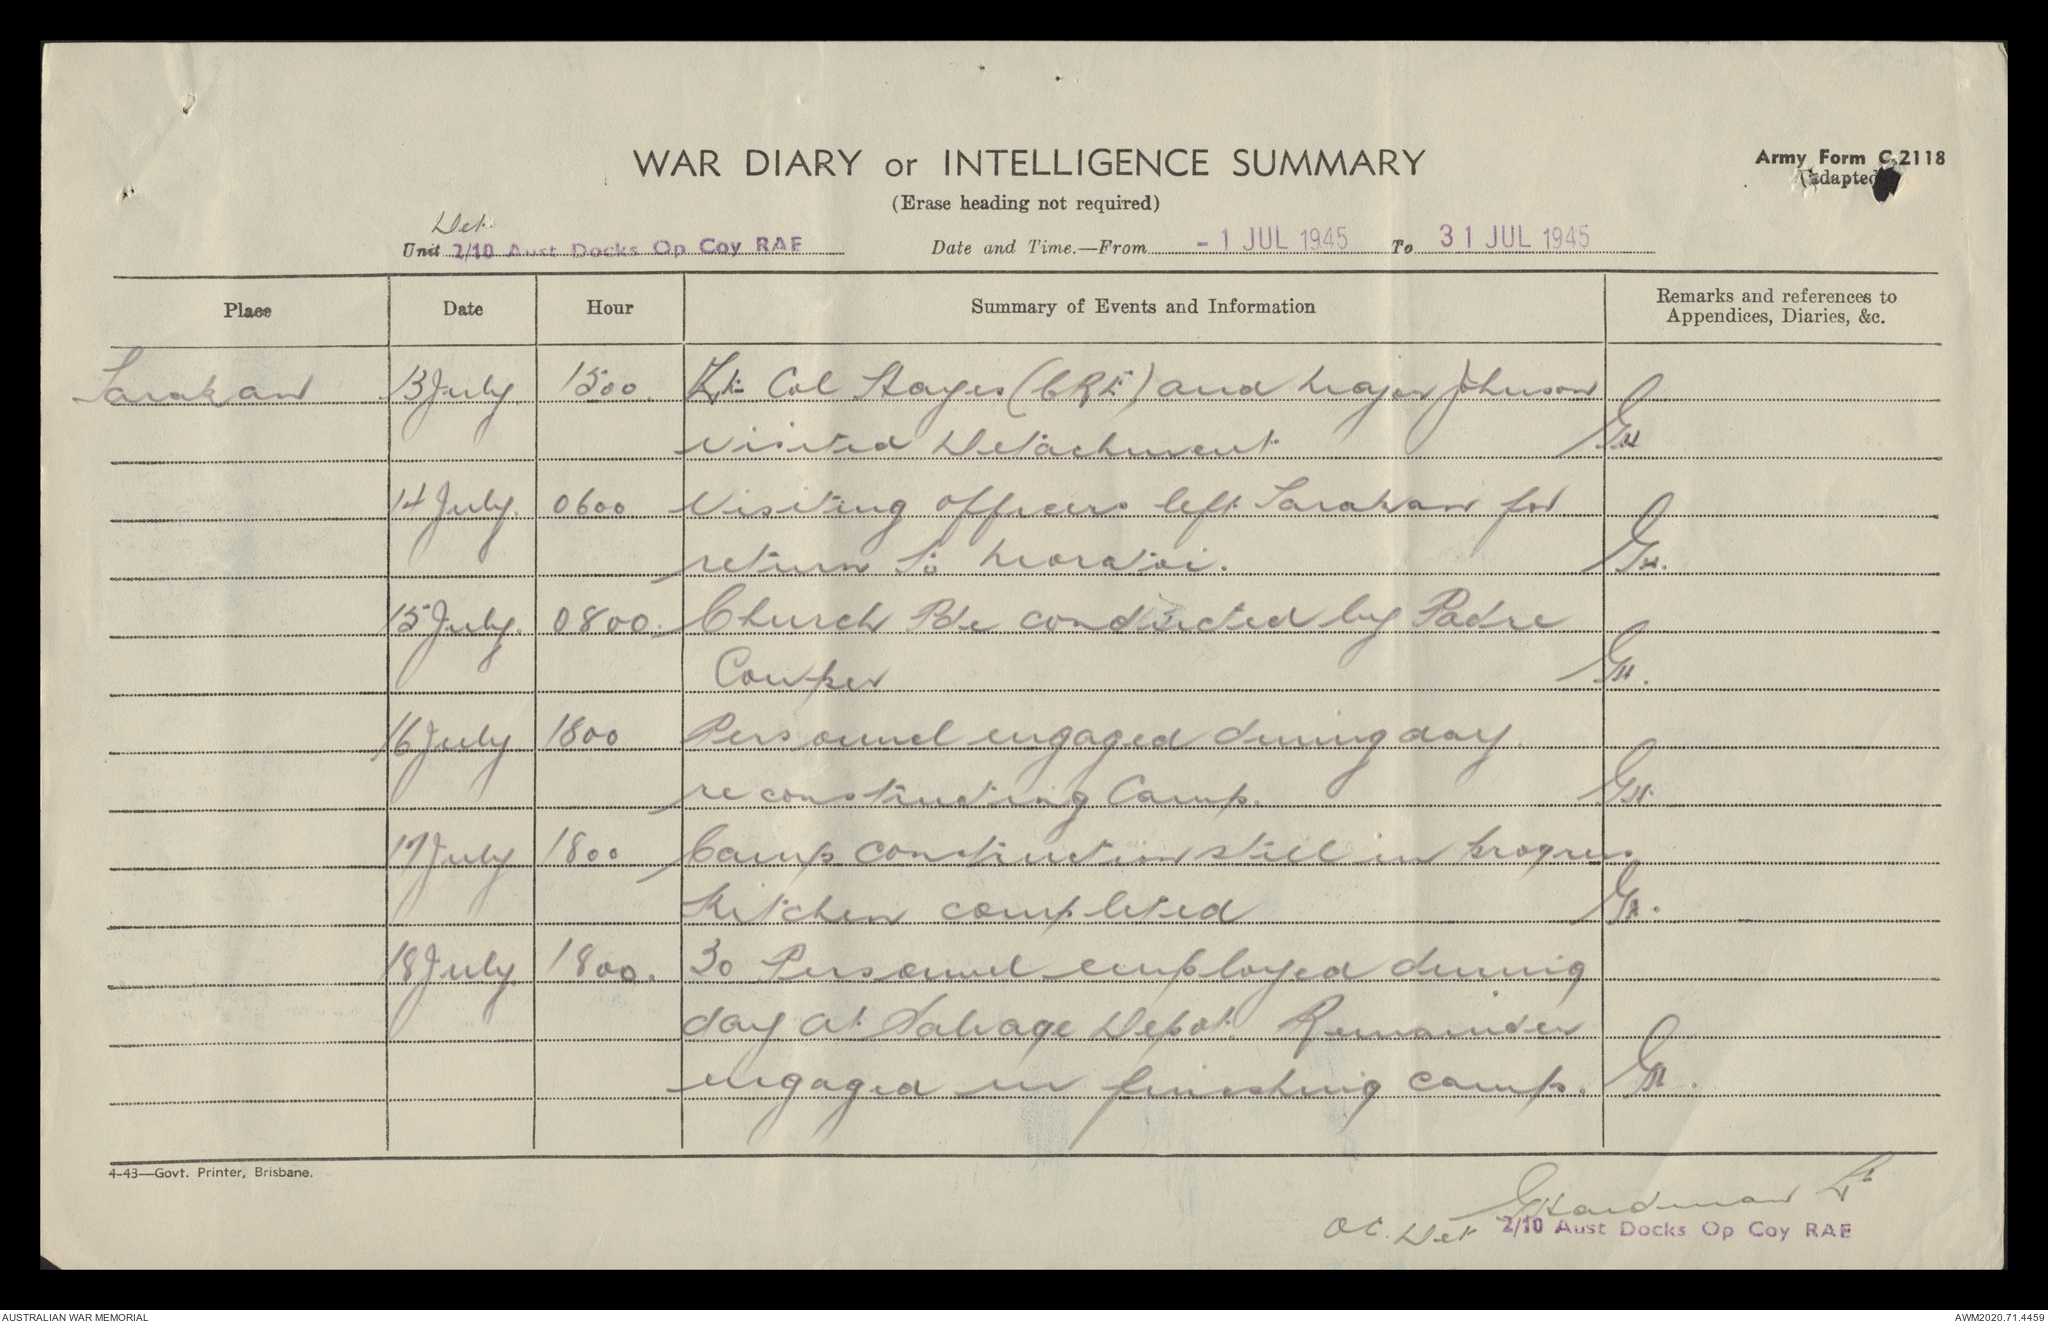 WAR DIARY or INTELLIGENCE SUMMARY
Army Form C.2118
(adapted)
(Erase heading not required)
Det.
Unit 2/10 Aust Docks Op Coy RAE Date and Time.—From - 1 JUL 1945 To 31 JUL 1945
Place Date Hour Summary of Events and Information Remarks and references to
Appendices, Diaries, &c.
Tarakan 13 July 1500. Lt Col Hayes (CRE) and Major Johnson
visited Detachment GH
14 July. 0600 Visiting officers left Tarakan for
return to Morotoi. GH.
15 July. 0800. Church Pde conducted by Padre
Cowper GH.
16 July 1800 Personnel engaged during day
reconstructing Camp. GH
17 July 1800 Camp construction still in progress
Kitchen completed GH.
18 July 1800. 30 Personnel employed during
day at Salvage Depot. Remainder
engaged in finishing camp. GH.
4-43—Govt. Printer, Brisbane.
GHardman Lt
OC. Det 2/10 Aust Docks Op Coy RAE
AUSTRALIAN WAR MEMORIAL
AWM2020.71.4459